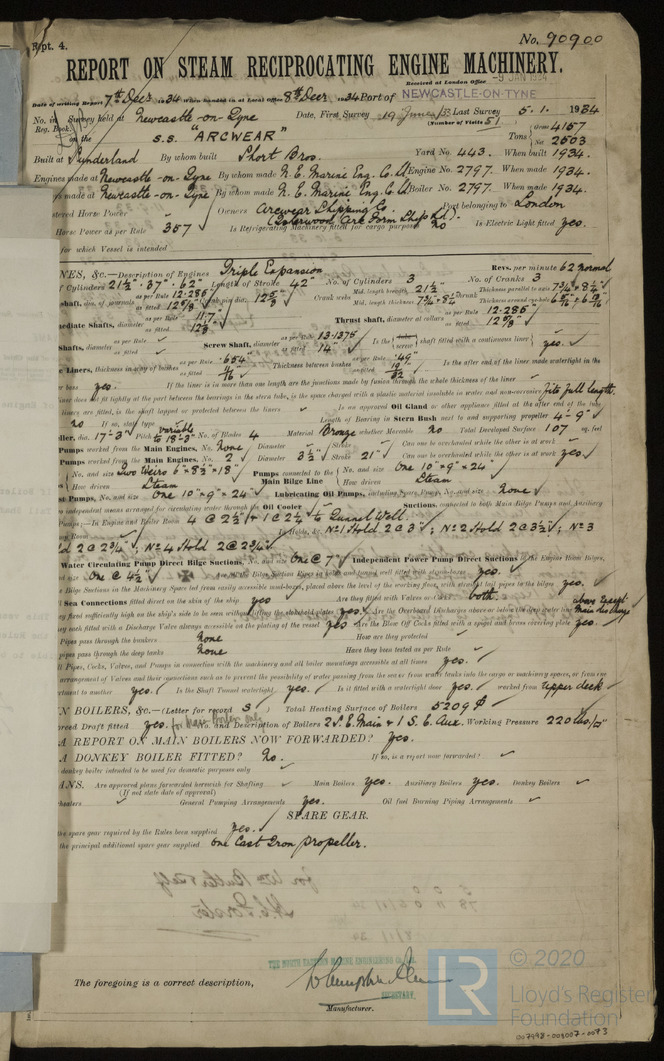 Rpt. 4.
No. 90900
REPORT ON STEAM RECIPROCATING ENGINE MACHINERY.
Received at London Office -9 JAN 1934
Date of writing Report 7th Decr 1934 When handed in at Local Office 8th Decr 1934 Port of NEWCASTLE-ON-TYNE
No. in Survey held at Newcastle-on-Tyne Date, First Survey 19 June/33 Last Survey 5.1. 1934
Reg. Book. (Number of Visits 51)
on the S.S. "ARCWEAR" Tons Gross 4157 Net 2503
Built at Sunderland By whom built Short Bros. Yard No. 443. When built 1934.
Engines made at Newcastle-on-Tyne By whom made N. E. Marine Eng. Co Ld Engine No. 2797. When made 1934.
made at Newcastle-on-Tyne By whom made N. E. Marine Eng. Co Ld Boiler No. 2797. When made 1934.
Horse Power Owners Arcwear Shipping Co Port belonging to London
Horse Power as per Rule 357 Is Refrigerating Machinery fitted for cargo purposes no Is Electric Light fitted yes.
for which Vessel is intended
NES, &c.—Description of Engines Triple Expansion Revs. per minute 62 normal
f Cylinders 21½" . 37" . 62" Length of Stroke 42" No. of Cylinders 3 No. of Cranks 3
shaft, dia. of journals as per Rule 12.285 as fitted 12⅝" Crank pin dia. 12⅝" Crank webs Mid. length breadth 21½" Mid. length thickness
ediate Shafts, diameter as per Rule 11.7" as fitted Thrust shaft, diameter at collars as per Rule 12.285" as fitted 12⅝"
Shafts, diameter as per Rule as fitted Screw Shaft, diameter as per Rule 13.1375 as fitted 14" Is the screw shaft fitted with a continuous liner yes.
e Liners, thickness in way of bushes as per Rule .654" as fitted Thickness between bushes as per Rule .49" as fitted 19/32" Is the after end of the liner made watertight in the
r boss yes. If the liner is in more than one length are the junctions made by fusion through the whole thickness of the liner
fit tightly at the part between the bearings in the stern tube, is the space charged with a plastic material insoluble in water and non-corrosive fits full length.
liners are fitted, is the shaft lapped or protected between the liners Is an approved Oil Gland or other appliance fitted at the after end of the
no If so, state type Length of Bearing in Stern Bush next to and supporting propeller 4'-9"
eller, dia. 17'-3" Pitch variable to 18'-3" No. of Blades 4 Material Bronze whether Moveable no Total Developed Surface 107 sq. feet
Pumps worked from the Main Engines, No. none Diameter Stroke Can one be overhauled while the other is at work
Pumps worked from the Main Engines, No. 2 Diameter 3½" Stroke 21" Can one be overhauled while the other is at work yes.
No. and size Two Weirs 6" × 8½" × 18" Pumps connected to the Main Bilge Line No. and size One 10" × 9" × 24"
How driven Steam How driven Steam
st Pumps, No. and size One 10" × 9" × 24" Lubricating Oil Pumps, including Spare Pump, No. and size None
independent means arranged for circulating water through the Oil Cooler Suctions, connected to both Main Bilge Pumps and Auxiliary
Pumps;—In Engine and Boiler Room 4 @ 2½" + 1 @ 2½" to Tunnel Well.
In Holds, &c. No 1 Hold 2 @ 3"; No 2 Hold 2 @ 3½"; No 3
ld 2 @ 2¾"; No 4 Hold 2 @ 2¾"
Water Circulating Pump Direct Bilge Suctions, No. and size One @ 7" Independent Power Pump Direct Suctions to the Engine Room Bilges,
size One @ 4½" Bilge Suction Pipes in holds and tunnel well fitted with strum-boxes yes.
e Bilge Suctions in the Machinery Space led from easily accessible mud-boxes, placed above the level of the working floor, with straight tail pipes to the bilges yes.
Sea Connections fitted direct on the skin of the ship yes Are they fitted with Valves or Cocks both.
fixed sufficiently high on the ship's side to be seen without lifting the stokehold plates yes. Are the Overboard Discharges above or below the deep water line above except main discharge
each fitted with a Discharge Valve always accessible on the plating of the vessel yes Are the Blow Off Cocks fitted with a spigot and brass covering plate yes.
Pipes pass through the bunkers none How are they protected
pipes pass through the deep tanks none Have they been tested as per Rule
ll Pipes, Cocks, Valves, and Pumps in connection with the machinery and all boiler mountings accessible at all times yes.
arrangement of Valves and their connections such as to prevent the possibility of water passing from the sea or from water tanks into the cargo or machinery spaces, or from one
rtment to another yes. Is the Shaft Tunnel watertight yes. Is it fitted with a watertight door yes. worked from upper deck
N BOILERS, &c.—(Letter for record S) Total Heating Surface of Boilers 5209
orced Draft fitted yes. for main boilers only No. and Description of Boilers 2 S.E. Main & 1 S.E. Aux. Working Pressure 220 lbs/□"
A REPORT ON MAIN BOILERS NOW FORWARDED? yes.
A DONKEY BOILER FITTED? No. If so, is a report now forwarded?
donkey boiler intended to be used for domestic purposes only
ANS. Are approved plans forwarded herewith for Shafting Main Boilers yes. Auxiliary Boilers yes. Donkey Boilers
(If not state date of approval)
heaters General Pumping Arrangements yes. Oil fuel Burning Piping Arrangements
SPARE GEAR.
the spare gear required by the Rules been supplied yes.
the principal additional spare gear supplied One Cast Iron propeller.
THE NORTH EASTERN MARINE ENGINEERING CO. LTD.
The foregoing is a correct description,
SECRETARY.
Manufacturer.
© 2020
LR
Lloyd's Register
Foundation
007998-008007-0093